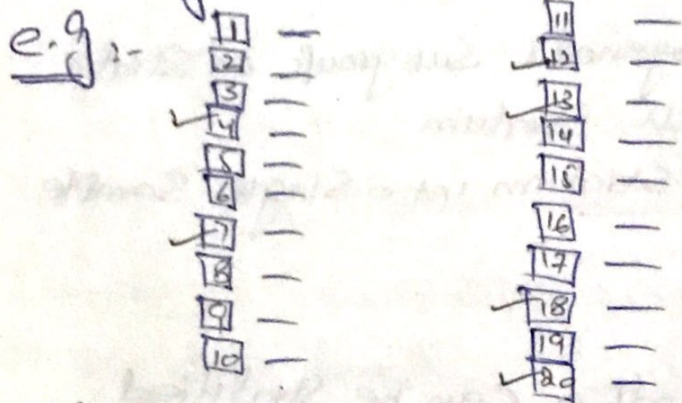 e.g :-
1 —
2 —
3 —
✓ 4 —
5 —
6 —
✓ 7 —
8 —
9 —
10 —
11 —
✓ 12 —
✓ 13 —
14 —
15 —
16 —
17 —
✓ 18 —
19 —
✓ 20 —